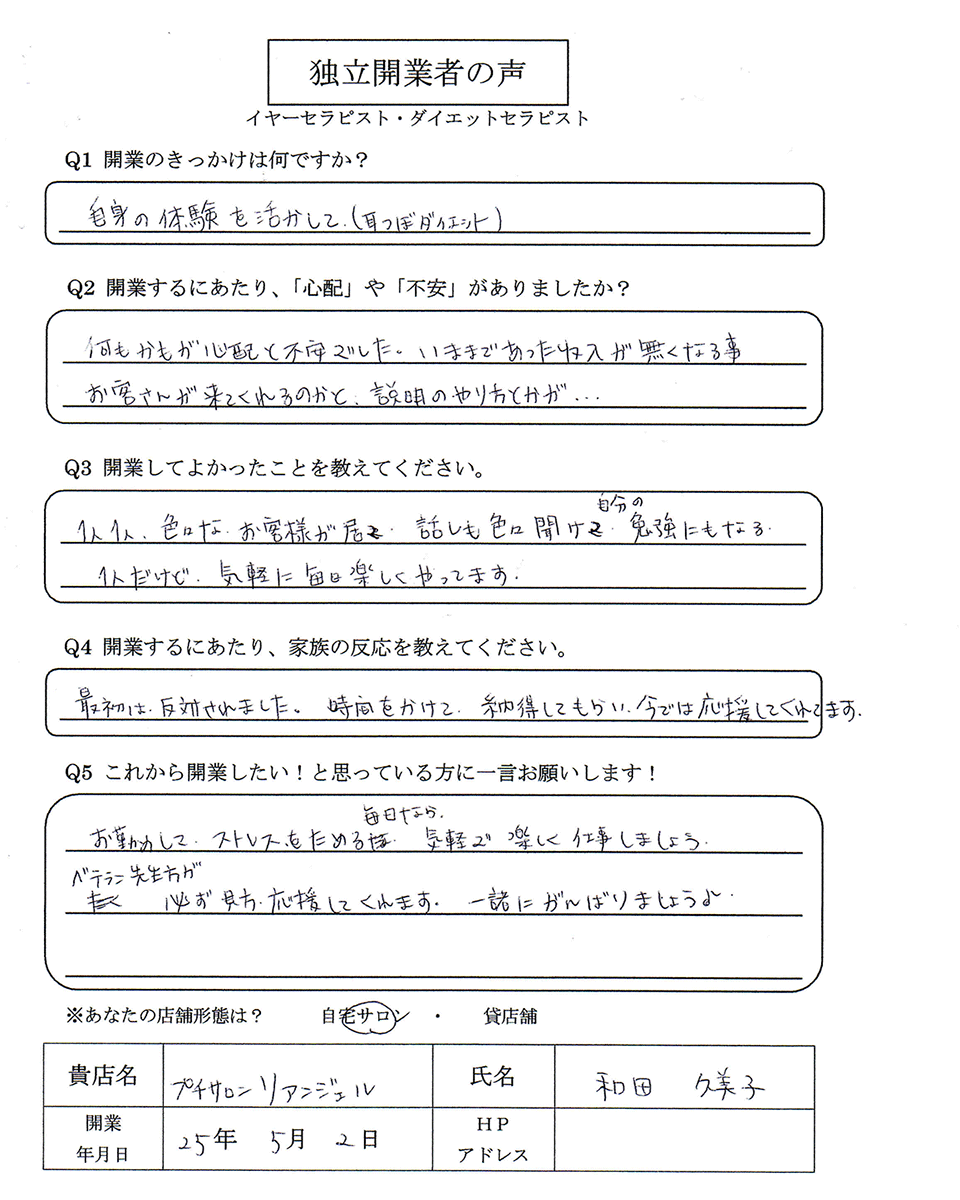 独立開業者の声
イヤーセラピスト・ダイエットセラピスト
Q1 開業のきっかけは何ですか？
自身の体験を活かして.(耳つぼダイエット)
Q2 開業するにあたり、「心配」や「不安」がありましたか？
何もかもが心配と不安でした。いままであった収入が無くなる事
お客さんが来てくれるのかと、説明のやり方とかが...
Q3 開業してよかったことを教えてください。
自分の
1人1人、色々な.お客様が居て. 話しも色々聞けて. 勉強にもなる.
1人だけど. 気軽に毎日楽しくやってます.
Q4 開業するにあたり、家族の反応を教えてください。
最初は.反対されました。時間をかけて. 納得してもらい.今では応援してくれてます.
Q5 これから開業したい！と思っている方に一言お願いします！
毎日なら.
お勤めして.ストレスをためる 気軽で楽しく仕事しましょう.
ベテラン先生方が
必ず見方.応援してくれます. 一緒にがんばりましょう♪
※あなたの店舗形態は？ 自宅サロン ・ 貸店舗
貴店名 プチサロンリアンジェル 氏名 和田 久美子
開業 年月日 25年 5月 2日 HP アドレス